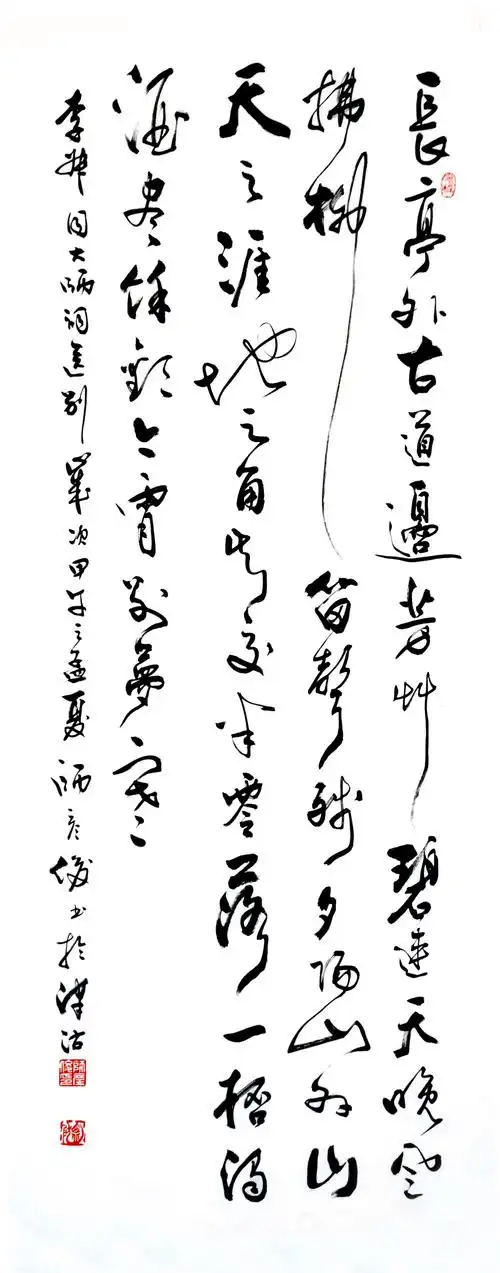 長亭外古道邊芳艸碧連天晚風
拂柳笛聲殘夕陽山外山
天之涯地之角知交半零落一桮濁
酒尽餘歡今宵別夢寒
李叔同大師詞送別歲次甲午之孟夏師彥俊書於津沽